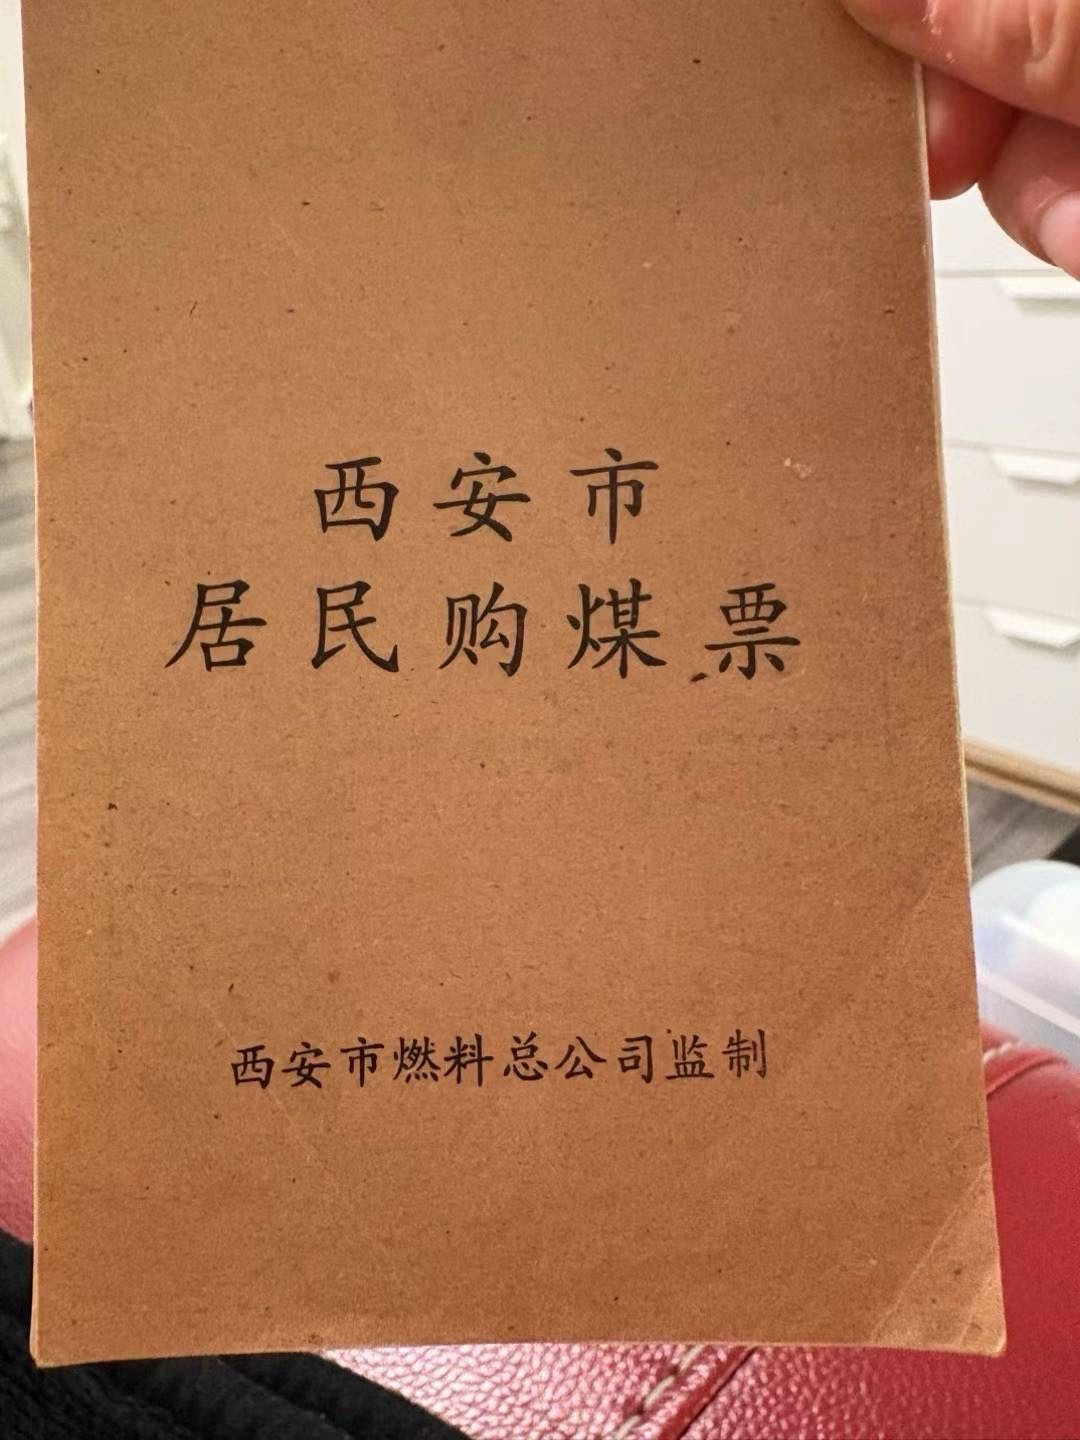 西安市
居民购煤票
西安市燃料总公司监制